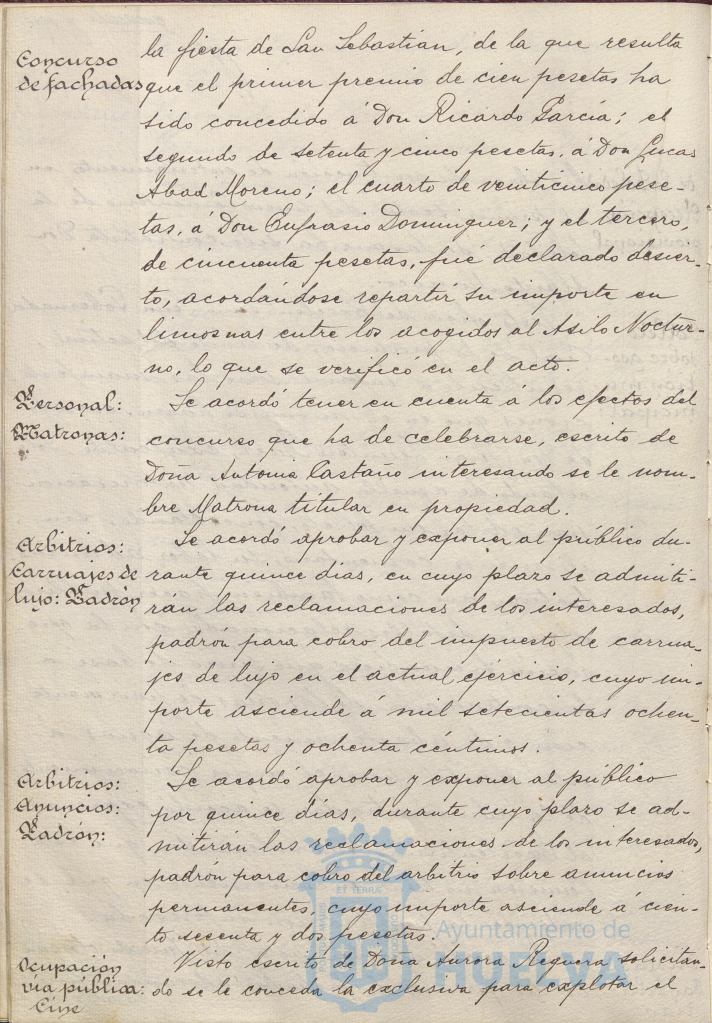 Concurso
de fachadas
la fiesta de San Sebastián, de la que resulta
que el primer premio de cien pesetas ha
sido concedido á Don Ricardo García; el
segundo de setenta y cinco pesetas, á Don Lucas
Abad Moreno; el cuarto de veinticinco pese-
tas, á Don Eufrasio Dominguez; y el tercero,
de cincuenta pesetas, fué declarado desier-
to, acordándose repartir su importe en
limosnas entre los acogidos al Asilo Noctur-
no, lo que se verificó en el acto.
Personal:
Matronas:
Se acordó tener en cuenta á los efectos del
concurso que ha de celebrarse, escrito de
Doña Antonia Castaño interesando se le nom-
bre Matrona titular en propiedad.
Arbitrios:
Carruajes de
lujo: Padrón
Se acordó aprobar y exponer al público du-
rante quince días, en cuyo plazo se admiti-
rán las reclamaciones de los interesados,
padrón para cobro del impuesto de carrua-
jes de lujo en el actual ejercicio, cuyo im-
porte asciende á mil setecientas ochen-
ta pesetas y ochenta céntimos.
Arbitrios:
Anuncios:
Padrón:
Se acordó aprobar y exponer al público
por quince días, durante cuyo plazo se ad-
mitirán las reclamaciones de los interesados,
padrón para cobro del arbitrio sobre anuncios
permanentes, cuyo importe asciende á cien-
to sesenta y dos pesetas.
Ocupación
vía pública:
Cine
Visto escrito de Doña Aurora Reguera solicitan-
do se le conceda la exclusiva para explotar el
Ayuntamiento de
HUELVA